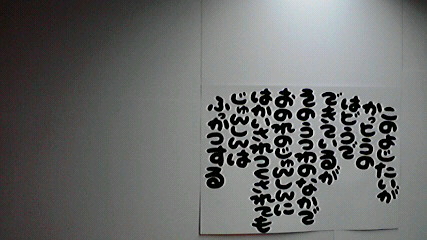 このよじたいが
かっとうの
はどうで
できているが
そのうつわのなかで
おのれのじゅんしんに
はかいされつくされても
じゅんしんは
ふっかつする